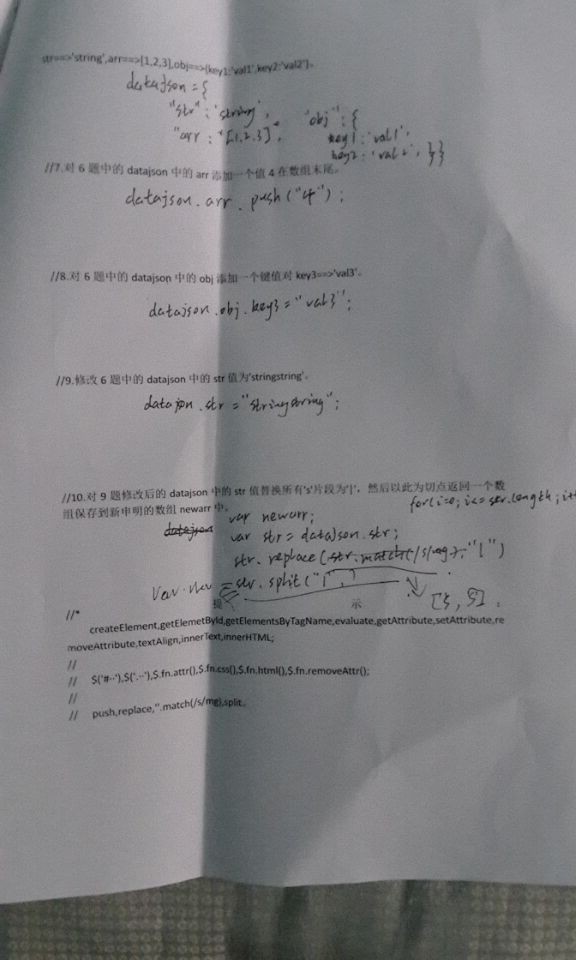 str==>'string',arr==>[1,2,3],obj==>{key1:'val1',key2:'val2'}。
datajson = {
"str" : 'string',
"arr : '[1,2,3]', "obj" : {
key1 : 'val1',
key2 : 'val2', }}
//7.对 6 题中的 datajson 中的 arr 添加一个值 4 在数组末尾。
datajson.arr.push("4");
//8.对 6 题中的 datajson 中的 obj 添加一个键值对 key3==>'val3'。
datajson.obj.key3="val3";
//9.修改 6 题中的 datajson 中的 str 值为'stringstring'。
datajson.str="stringstring";
//10.对 9 题修改后的 datajson 中的 str 值替换所有's'片段为'|'，然后以此为切点返回一个数
组保存到新申明的数组 newarr 中。
for(i=0; i<=str.length; i+
datajson var newarr;
var str = datajson.str;
str.replace(str.match(/s/mg),"|")
Var = str.split("|",)
[s, s].
提 示
//*
createElement,getElemetById,getElementsByTagName,evaluate,getAttribute,setAttribute,re
moveAttribute,textAlign,innerText,innerHTML;
//
// $('#··'),$('.··'),$.fn.attr(),$.fn.css(),$.fn.html(),$.fn.removeAttr();
//
// push,replace,''.match(/s/mg),split。